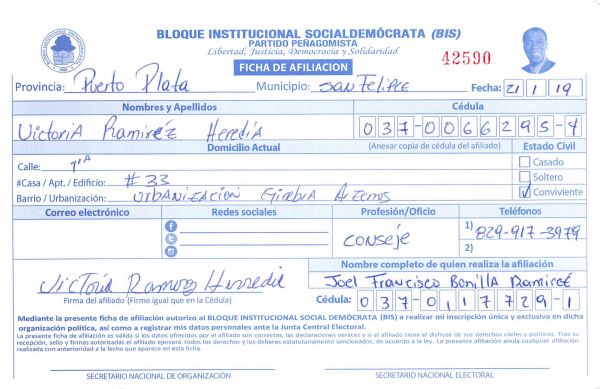 BLOQUE INSTITUCIONAL SOCIALDEMÓCRATA (BIS)
PARTIDO PEÑAGOMISTA
Libertad, Justicia, Democracia y Solidaridad
FICHA DE AFILIACION
42590
Provincia: Puerto Plata Municipio: San Felipe Fecha: 21 1 19
Nombres y Apellidos Cédula
Victoria Ramirez Heredia 037-0066295-4
Domicilio Actual (Anexar copia de cédula del afiliado) Estado Civil
Calle: 1ra Casado
#Casa / Apt. / Edificio: #33 Soltero
Barrio / Urbanización: urbanizacion Ginebra Conviviente
Correo electrónico Redes sociales Profesión/Oficio Teléfonos
conseje 1) 829-917-3979
2)
Nombre completo de quien realiza la afiliación
Victoria Ramirez Herredia Joel Francisco Bonilla Ramirez
Firma del afiliado (Firme igual que en la Cédula) Cédula: 037-0117729-1
Mediante la presente ficha de afiliación autorizo al BLOQUE INSTITUCIONAL SOCIAL DEMÓCRATA (BIS) a realizar mi inscripción única y exclusiva en dicha
organización política, así como a registrar mis datos personales ante la Junta Central Electoral.
La presente ficha de afiliación es válida si los datos ofrecidos por el afiliado son correctos, las declaraciones veraces y si el afiliado tiene el disfrute de sus derechos civiles y políticos. Tras su
recepción, sello y firmas autorizadas el afiliado ejercerá todos los derechos y los deberes estatutariamente sancionados, de acuerdo a la ley. La presente afiliación anula cualquier afiliación
realizada con anterioridad a la fecha que aparece en esta ficha.
SECRETARIO NACIONAL DE ORGANIZACIÓN SECRETARIO NACIONAL ELECTORAL